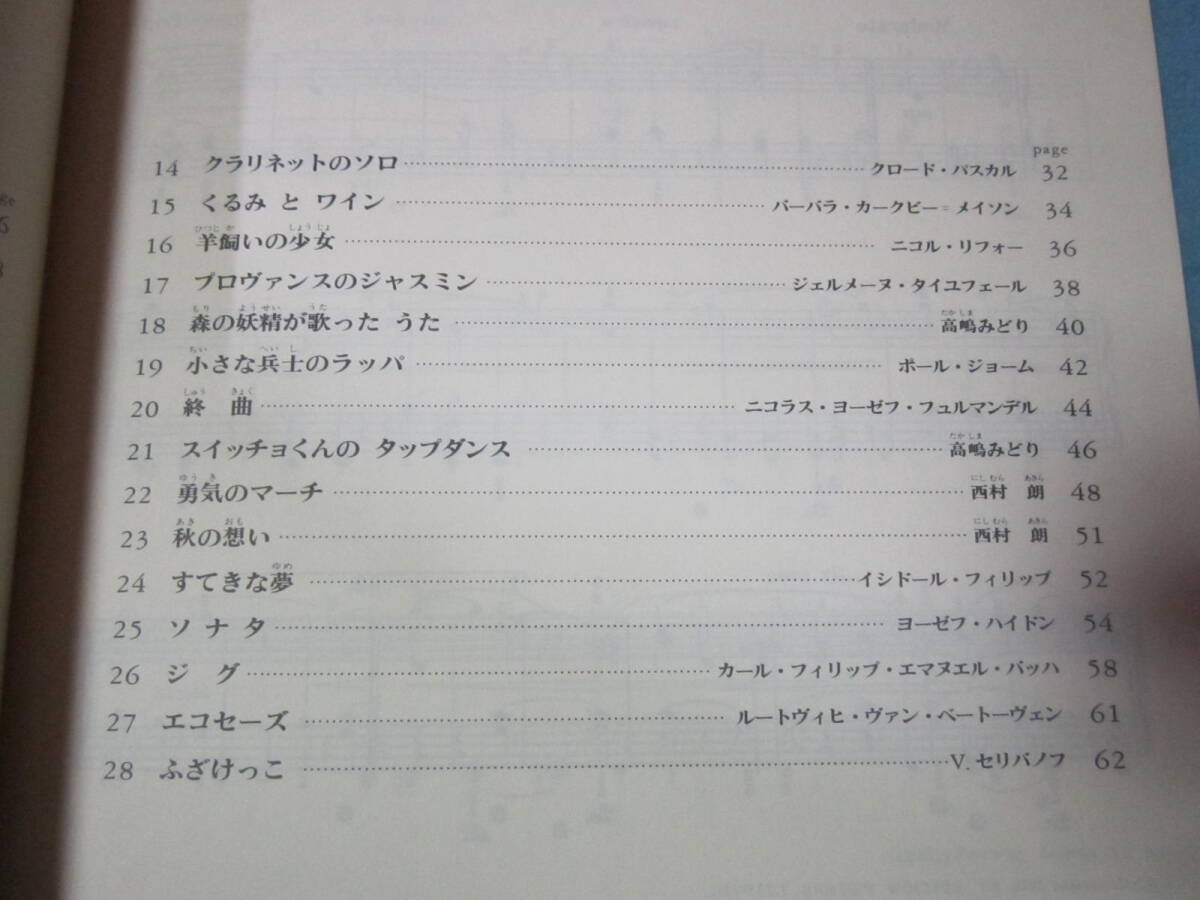 page
14 クラリネットのソロ クロード・パスカル 32
15 くるみ と ワイン バーバラ・カークビー＝メイソン 34
16 羊飼いの少女 ニコル・リフォー 36
17 プロヴァンスのジャスミン ジェルメーヌ・タイユフェール 38
18 森の妖精が歌った うた 高嶋みどり 40
19 小さな兵士のラッパ ポール・ジョーム 42
20 終 曲 ニコラス・ヨーゼフ・フュルマンデル 44
21 スイッチョくんの タップダンス 高嶋みどり 46
22 勇気のマーチ 西村 朗 48
23 秋の想い 西村 朗 51
24 すてきな夢 イシドール・フィリップ 52
25 ソ ナ タ ヨーゼフ・ハイドン 54
26 ジ グ カール・フィリップ・エマヌエル・バッハ 58
27 エコセーズ ルートヴィヒ・ヴァン・ベートーヴェン 61
28 ふざけっこ V. セリバノフ 62